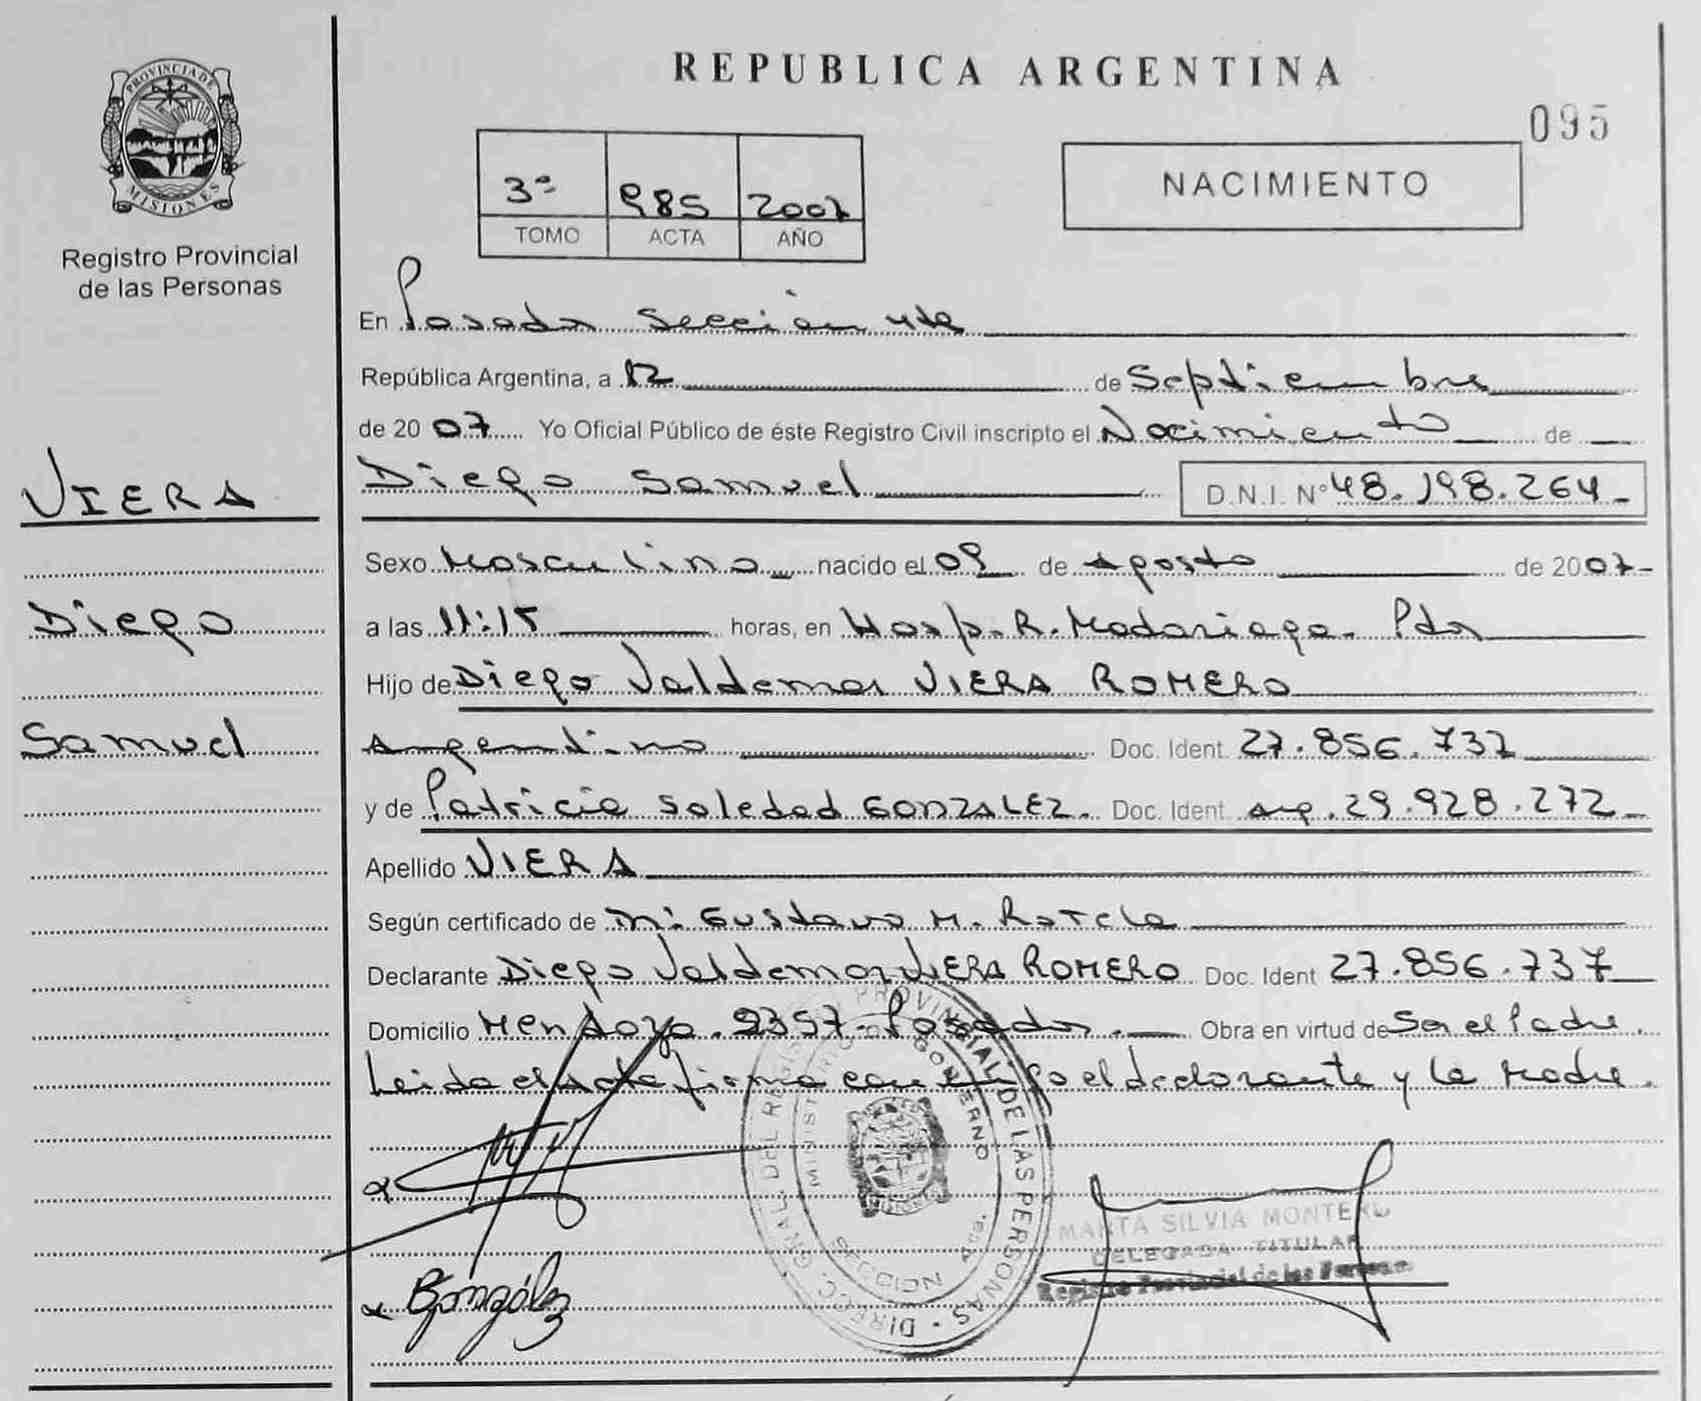 PROVINCIA DE
MISIONES
Registro Provincial
de las Personas
VIERA
Diego
Samuel
REPUBLICA ARGENTINA
095
3º 985 2007
TOMO ACTA AÑO
NACIMIENTO
En Posadas Sección 4ta
República Argentina, a 12 de Septiembre
de 2007 Yo Oficial Público de éste Registro Civil inscripto el Nacimiento de
Diego Samuel D.N.I. Nº 48.198.264-
Sexo Masculino nacido el 09 de Agosto de 2007-
a las 11:15 horas, en Hosp. R. Madariaga. Pdas
Hijo de Diego Valdemar VIERA ROMERO
Argentino Doc. Ident. 27.856.737
y de Patricia Soledad GONZALEZ. Doc. Ident. Arg. 29.928.272-
Apellido VIERA
Según certificado de Gustavo M. Rotela
Declarante Diego Valdemar VIERA ROMERO Doc. Ident 27.856.737
Domicilio Mendoza. 2357- Posadas. Obra en virtud de Ser el Padre.
Leida el acta firma conmigo el declarante y la Madre.
DIRECC. GRAL. DEL REGISTRO PROVINCIAL DE LAS PERSONAS
MINISTERIO DE GOBIERNO
MISIONES
González
MARTA SILVIA MONTERO
DELEGADA TITULAR
Registro Provincial de las Personas